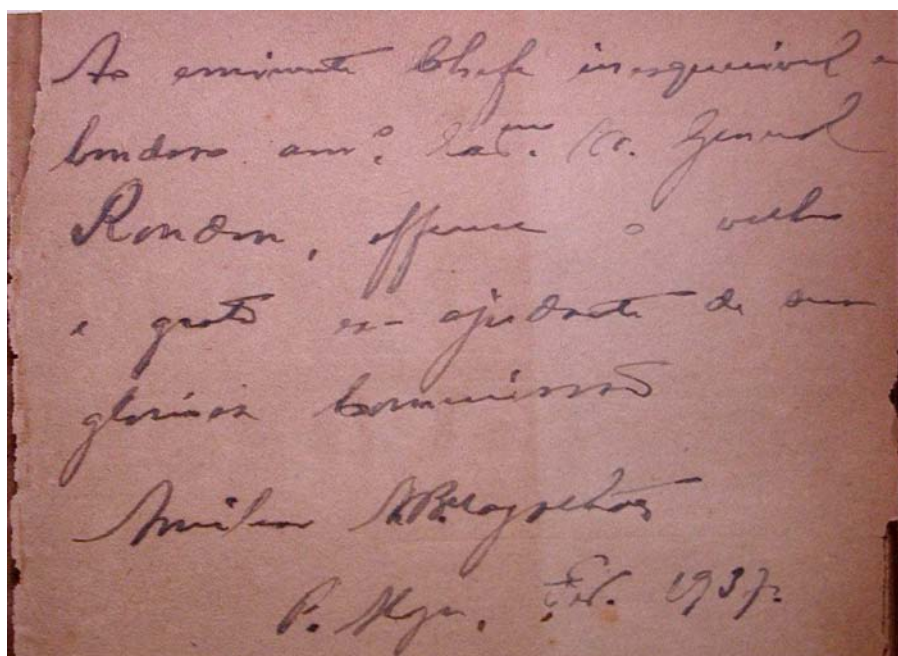 Ao eminente Chefe inesquecivel e
bondoso am.º Snr. General
Rondon, offerece o velho
e grato ex-ajudante de sua
gloriosa Commissão
Amilcar A. B. Magalhães
P. Alegre, Fev. 1937.